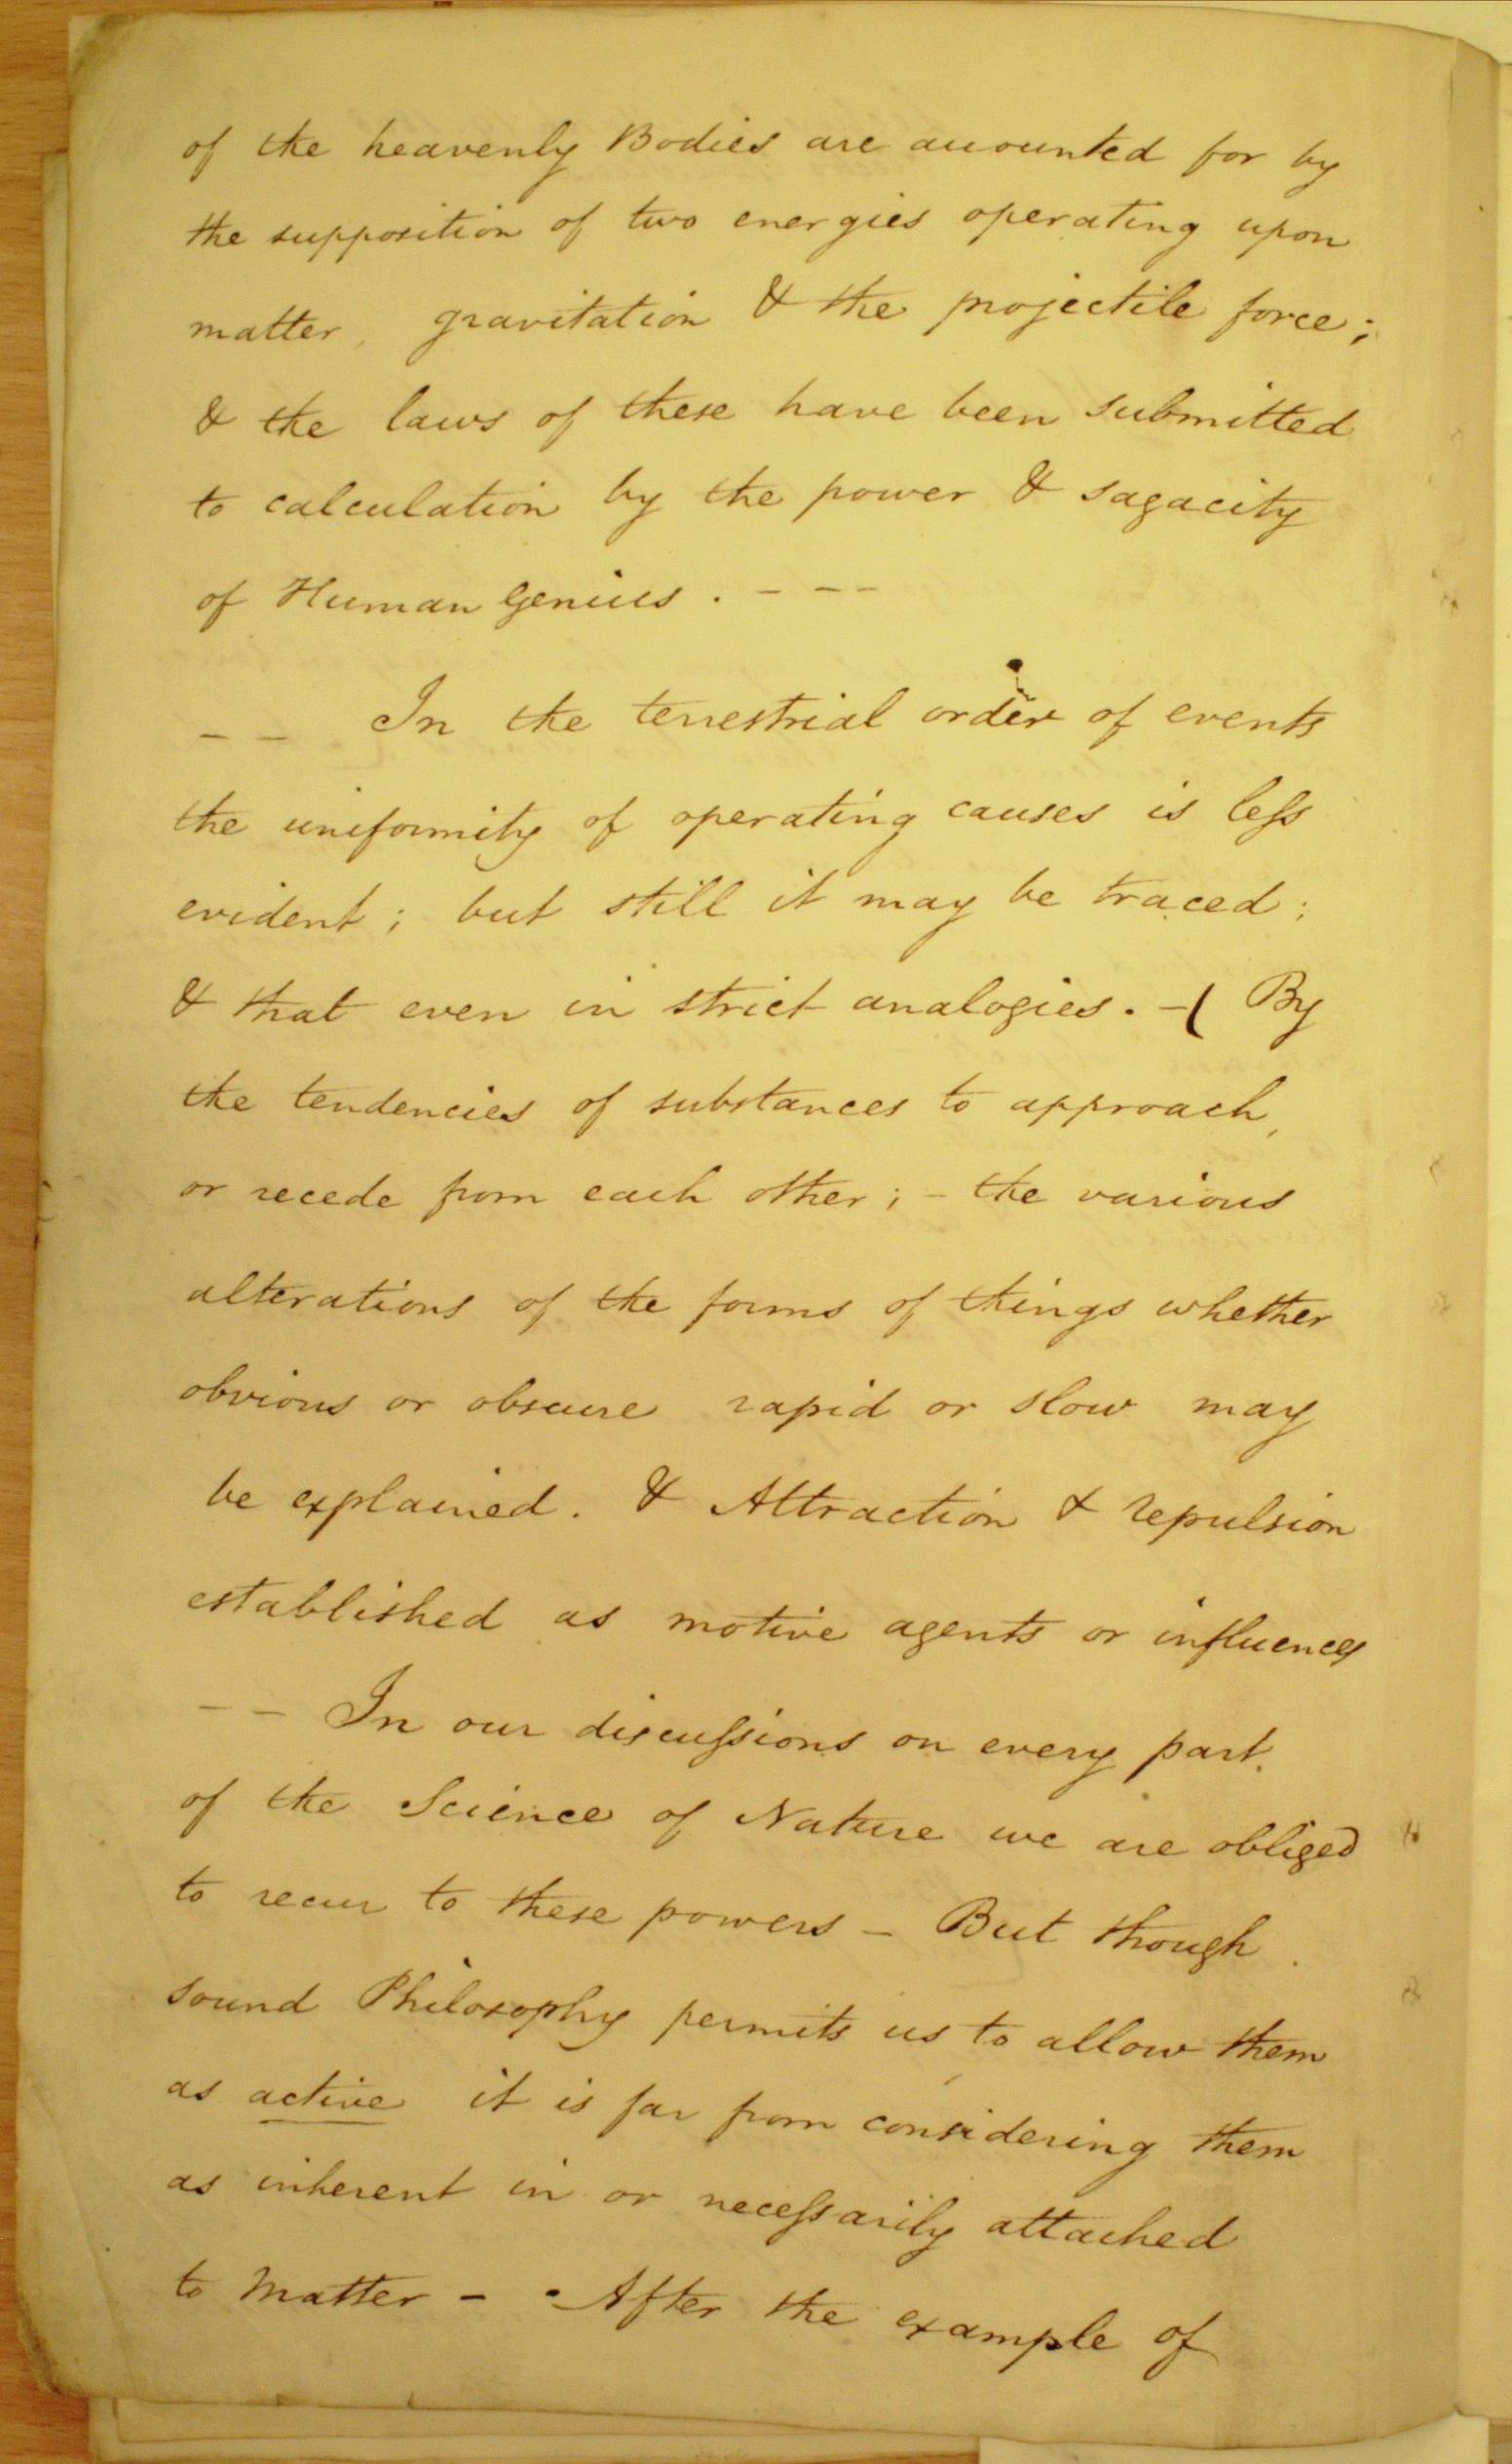 of the heavenly Bodies are accounted for by
the supposition of two energies operating upon
matter, gravitation & the projectile force;
& the laws of these have been submitted
to calculation by the power & sagacity
of Human Genius. - - -
- - In the terrestrial order of events
the uniformity of operating causes is leſs
evident; but still it may be traced;
& that even in strict analogies. - ( By
the tendencies of substances to approach,
or recede from each other; - the various
alterations of the forms of things whether
obvious or obscure rapid or slow may
be explained. & Attraction & repulsion
established as motive agents or influences
- - In our discuſsions on every part.
of the Science of Nature we are obliged
to recur to these powers - But though
sound Philosophy permits us to allow them
as active it is far from considering them
as inherent in or neceſsarily attached
to Matter - - After the example of